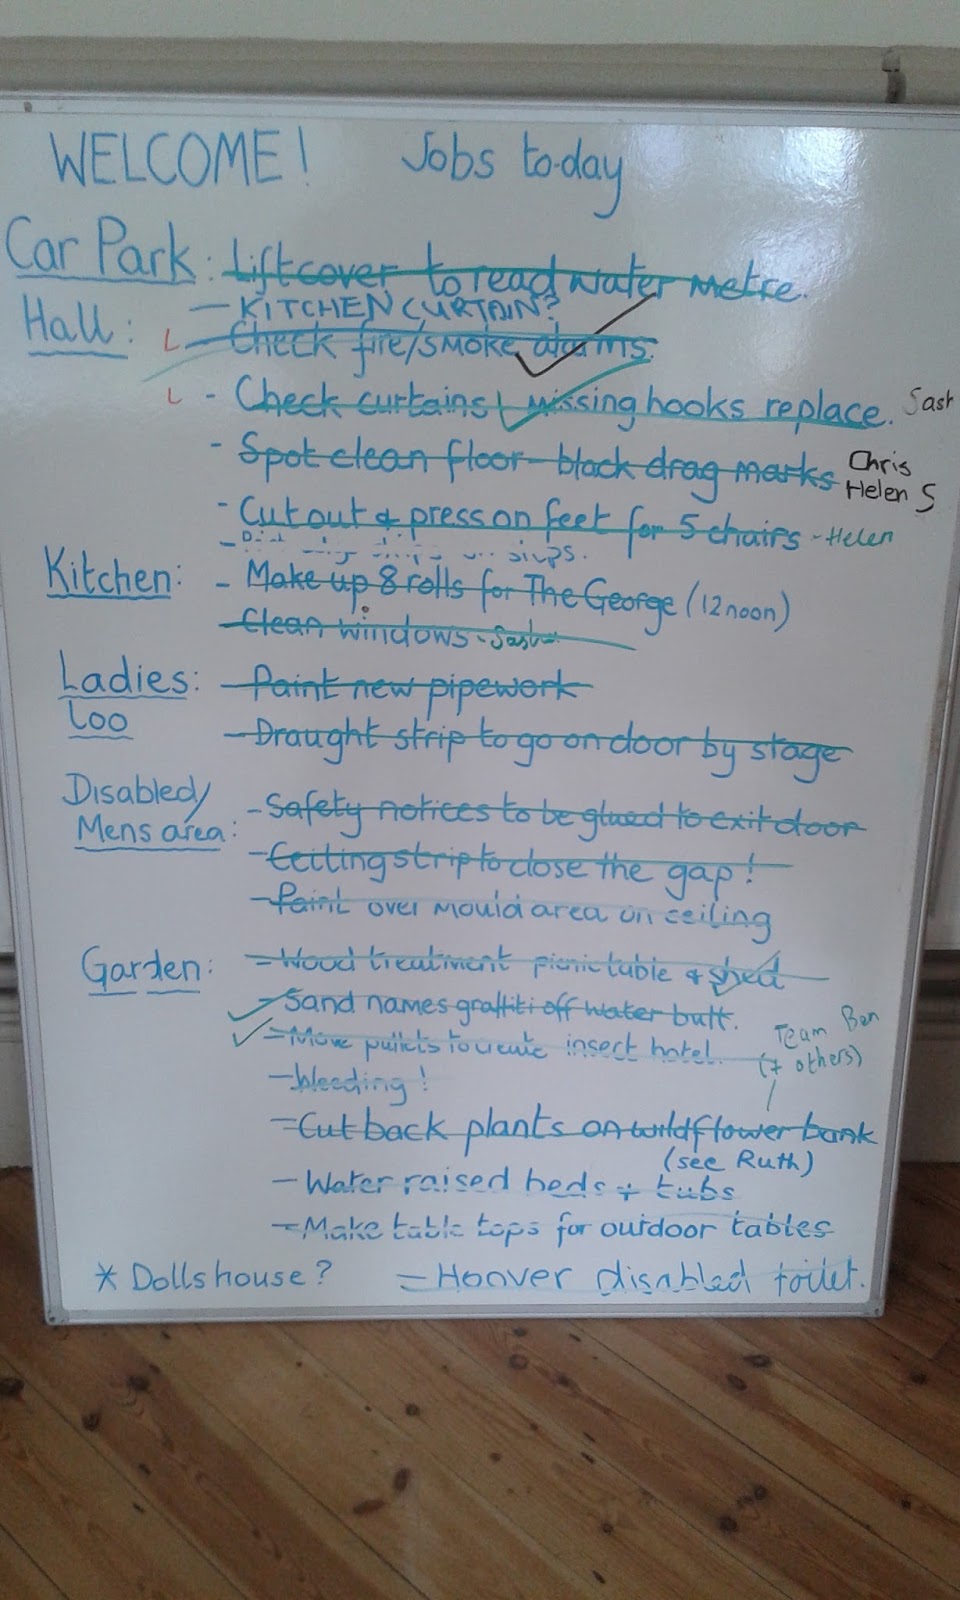 WELCOME! Jobs to-day
Car Park: Lift cover to read water metre.
- KITCHEN CURTAIN?
Hall: L - Check fire/smoke alarms.
L - Check curtains & missing hooks replace. Sash
- Spot clean floor - black drag marks Chris
Helen S
- Cut out & press on feet for 5 chairs - Helen
Kitchen: - Make up 8 rolls for The George (12 noon)
- Clean windows - Sash
Ladies: - Paint new pipework
Loo
- Draught strip to go on door by stage
Disabled/
Mens area: - Safety notices to be glued to exit door
- Ceiling strip to close the gap!
- Paint over mould area on ceiling
Garden: - Wood treatment picnic table & shed
- Sand names graffiti off water butt.
- Move pallets to create insect hotel.
Team Ben
(7 others)
- Weeding!
- Cut back plants on wildflower bank
(see Ruth)
- Water raised beds + tubs
- Make table tops for outdoor tables
* Dolls house? - Hoover disabled toilet.